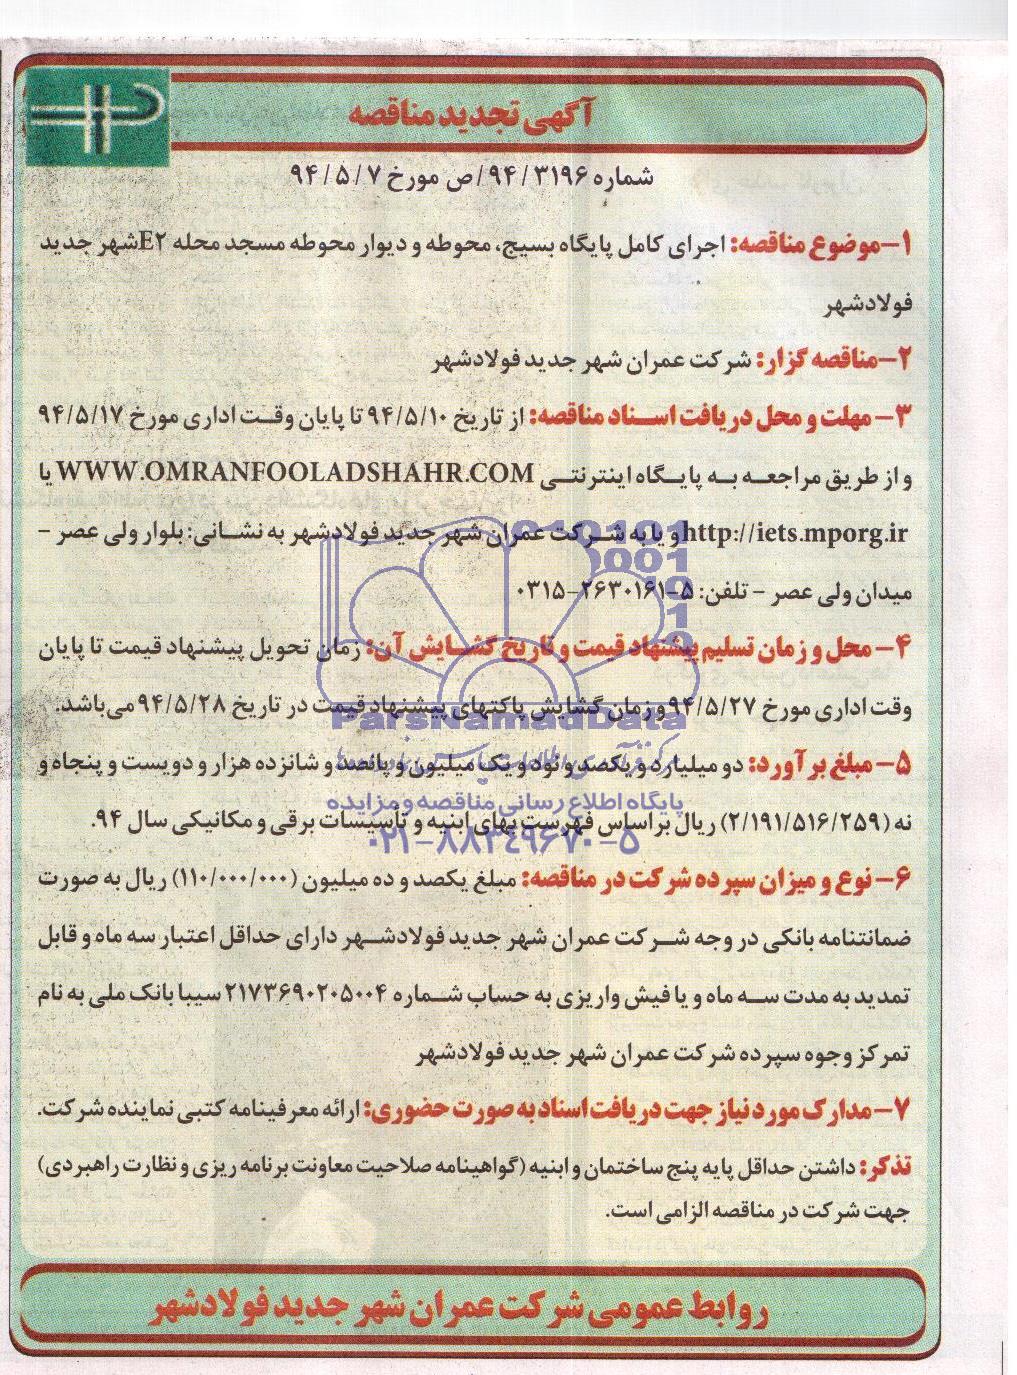 آگهی تجدید مناقصه
شماره ۹۴/۳۱۹۶/ص مورخ ۹۴/۵/۷
۱-موضوع مناقصه: اجرای کامل پایگاه بسیج، محوطه و دیوار محوطه مسجد محله E۲شهر جدید
فولادشهر
۲-مناقصه گزار: شرکت عمران شهر جدید فولادشهر
۳- مهلت و محل دریافت اسناد مناقصه: از تاریخ ۹۴/۵/۱۰ تا پایان وقت اداری مورخ ۹۴/۵/۱۷
و از طریق مراجعه به پایگاه اینترنتی WWW.OMRANFOOLADSHAHR.COM یا
http://iets.mporg.ir و یا به شرکت عمران شهر جدید فولادشهر به نشانی: بلوار ولی عصر -
میدان ولی عصر - تلفن: ۵-۲۶۳۰۱۶۱-۰۳۱۵
۴- محل و زمان تسلیم پیشنهاد قیمت و تاریخ گشایش آن: زمان تحویل پیشنهاد قیمت تا پایان
وقت اداری مورخ ۹۴/۵/۲۷و زمان گشایش پاکتهای پیشنهاد قیمت در تاریخ ۹۴/۵/۲۸ می‌باشد.
ParsNamadData
۵- مبلغ برآورد: دو میلیارد و یکصد و نود و یک میلیون و پانصد و شانزده هزار و دویست و پنجاه و
پایگاه اطلاع رسانی مناقصه و مزایده
نه (۲/۱۹۱/۵۱۶/۲۵۹) ریال براساس فهرست بهای ابنیه و تأسیسات برقی و مکانیکی سال ۹۴.
۰۲۱-۸۸۳۴۹۶۷۰-۵
۶- نوع و میزان سپرده شرکت در مناقصه: مبلغ یکصد و ده میلیون (۱۱۰/۰۰۰/۰۰۰) ریال به صورت
ضمانتنامه بانکی در وجه شرکت عمران شهر جدید فولادشهر دارای حداقل اعتبار سه ماه و قابل
تمدید به مدت سه ماه و یا فیش واریزی به حساب شماره ۲۱۷۳۶۹۰۲۰۵۰۰۴ سیبا بانک ملی به نام
تمرکز وجوه سپرده شرکت عمران شهر جدید فولادشهر
۷- مدارک مورد نیاز جهت دریافت اسناد به صورت حضوری: ارائه معرفینامه کتبی نماینده شرکت.
تذکر: داشتن حداقل پایه پنج ساختمان و ابنیه (گواهینامه صلاحیت معاونت برنامه ریزی و نظارت راهبردی)
جهت شرکت در مناقصه الزامی است.
روابط عمومی شرکت عمران شهر جدید فولادشهر